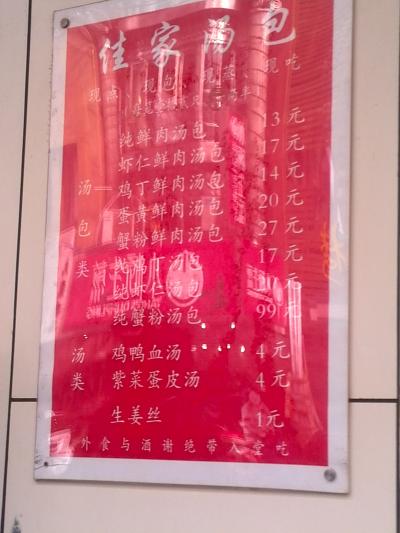 佳家汤包
现点、现包、现蒸、现吃
汤包类
纯鲜肉汤包 元
虾仁鲜肉汤包 17元
鸡丁鲜肉汤包 14元
蛋黄鲜肉汤包 20元
蟹粉鲜肉汤包 27元
纯鸡丁汤包 17元
纯虾仁汤包 元
纯蟹粉汤包 99元
汤类
鸡鸭血汤 4元
紫菜蛋皮汤 4元
生姜丝 1元
外食与酒谢绝带入堂吃